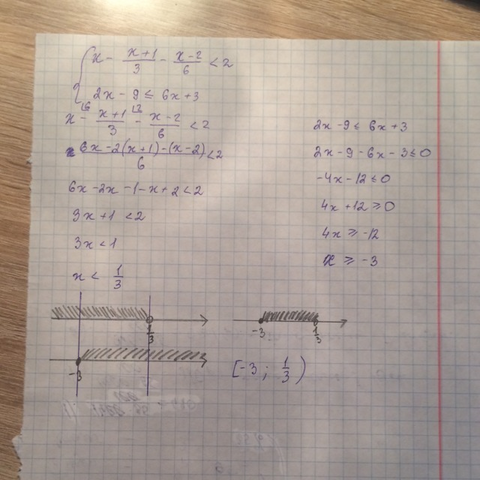 { x - \frac{x+1}{3} - \frac{x-2}{6} < 2
2x - 9 ≤ 6x + 3
x - \frac{x+1}{3} - \frac{x-2}{6} < 2
\frac{6x-2(x+1)-(x-2)}{6} < 2
6x - 2x - 1 - x + 2 < 2
3x + 1 < 2
3x < 1
x < \frac{1}{3}
2x - 9 ≤ 6x + 3
2x - 9 - 6x - 3 ≤ 0
-4x - 12 ≤ 0
4x + 12 ≥ 0
4x ≥ -12
x ≥ -3
\frac{1}{3}
-3
-3 \frac{1}{3}
[-3 ; \frac{1}{3})